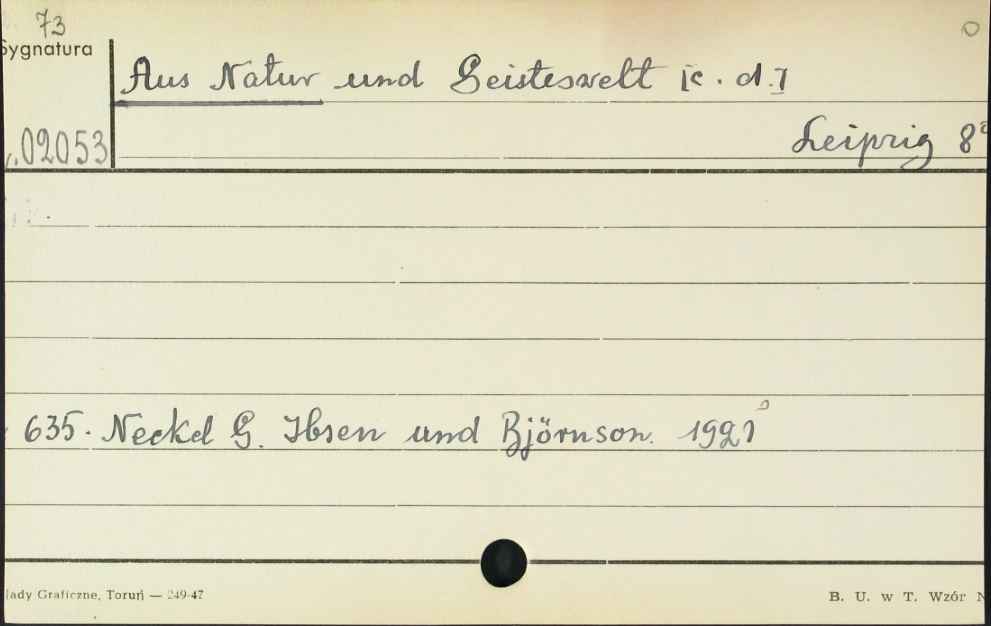 73
Sygnatura
02053
Aus Natur und Geisteswelt [c. d.]
Leipzig 8°
635. Neckel G. Ibsen und Björnson. 1921
łady Graficzne, Toruń — 249-47
B. U. w T. Wzór N